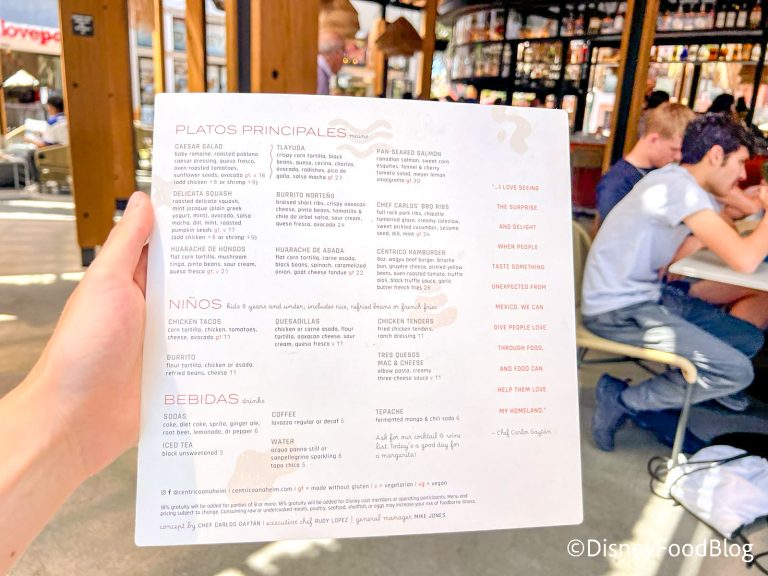 love
PLATOS PRINCIPALES mains
CAESAR SALAD
baby romaine, roasted poblano
caesar dressing, queso fresco,
oven-roasted tomatoes,
sunflower seeds, avocado gf, v 16
(add chicken +8 or shrimp +9)
DELICATA SQUASH
roasted delicata squash,
mint jocoque (plain greek
yogurt, mint), avocado, salsa
macha, dill, mint, roasted
pumpkin seeds gf, v 17
(add chicken +8 or shrimp +9)
HUARACHE DE HONGOS
flat corn tortilla, mushroom
tinga, pinto beans, sour cream,
queso fresco v 21
TLAYUDA
crispy corn tortilla, black
beans, queso, cecina, chorizo,
avocado, radishes, pico de
gallo, salsa macha gf 23
BURRITO NORTEÑO
braised short ribs, crispy oaxacan
cheese, pinto beans, tomatillo &
chile de arbol salsa, sour cream,
queso fresco, avocado 24
HUARACHE DE ASADA
flat corn tortilla, carne asada,
black beans, spinach, caramelized
onion, goat cheese fondue gf 22
PAN-SEARED SALMON
canadian salmon, sweet corn
esquites, fennel & cherry
tomato salad, meyer lemon
vinaigrette gf 30
CHEF CARLOS' BBQ RIBS
full rack pork ribs, chipotle
tamarind glaze, creamy coleslaw,
sweet pickled cucumber, sesame
seed, dill, mint gf 34
CÉNTRICO HAMBURGER
8oz. wagyu beef burger, brioche
bun, gruyère cheese, pickled yellow
beets, oven roasted tomato, truffle
aioli, black truffle sauce, garlic
butter french fries 26
NIÑOS kids 9 years and under; includes rice, refried beans or french fries
CHICKEN TACOS
corn tortilla, chicken, tomatoes,
cheese, avocado gf 11
BURRITO
flour tortilla, chicken or asada,
refried beans, cheese 11
QUESADILLAS
chicken or carne asada, flour
tortilla, oaxacan cheese, sour
cream, queso fresco v 11
CHICKEN TENDERS
fried chicken tenders,
ranch dressing 11
TRES QUESOS
MAC & CHEESE
elbow pasta, creamy
three-cheese sauce v 11
BEBIDAS drinks
SODAS
coke, diet coke, sprite, ginger ale,
root beer, lemonade, dr pepper 6
ICED TEA
black unsweetened 5
COFFEE
lavazza regular or decaf 5
WATER
acqua panna still or
sanpellegrino sparkling 8
topo chico 5
TEPACHE
fermented mango & chili soda 6
Ask for our cocktail & wine
list. Today's a good day for
a margarita!
"...I LOVE SEEING
THE SURPRISE
AND DELIGHT
WHEN PEOPLE
TASTE SOMETHING
UNEXPECTED FROM
MEXICO. WE CAN
GIVE PEOPLE LOVE
THROUGH FOOD,
AND FOOD CAN
HELP THEM LOVE
MY HOMELAND."
- Chef Carlos Gaytán
@centricoanaheim | centricoanaheim.com | gf = made without gluten | v = vegetarian | vg = vegan
18% gratuity will be added for parties of 8 or more. 18% gratuity will be added for Disney cast members or operating participants. Menu and
pricing subject to change. Consuming raw or undercooked meats, poultry, seafood, shellfish, or eggs may increase your risk of foodborne illness.
concept by CHEF CARLOS GAYTÁN | executive chef RUDY LOPEZ | general manager MIKE JONES
©DisneyFoodBlog